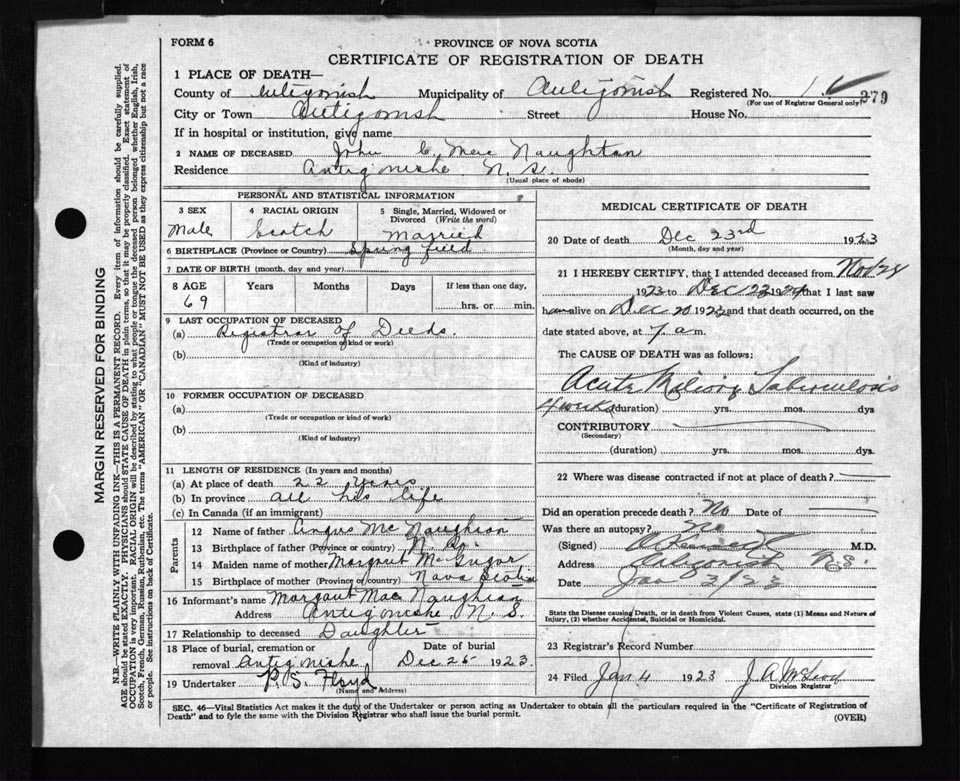 FORM 6
PROVINCE OF NOVA SCOTIA
CERTIFICATE OF REGISTRATION OF DEATH
1 PLACE OF DEATH—
County of Antigonish Municipality of Antigonish Registered No.
(For use of Registrar General only) 279
City or Town Antigonish Street House No.
If in hospital or institution, give name
2 NAME OF DECEASED John C. Mac Naughton
Residence Antigonishe N. S.
(Usual place of abode)
PERSONAL AND STATISTICAL INFORMATION
3 SEX 4 RACIAL ORIGIN 5 Single, Married, Widowed or Divorced (Write the word)
Male Scotch Married
6 BIRTHPLACE (Province or Country) Springfield
7 DATE OF BIRTH (month, day and year)
8 AGE Years Months Days If less than one day,
69 hrs. or min.
9 LAST OCCUPATION OF DECEASED
(a) Registrar of Deeds.
(Trade or occupation or kind or work)
(b)
(Kind of Industry)
10 FORMER OCCUPATION OF DECEASED
(a)
(Trade or occupation or kind of work)
(b)
(Kind of Industry)
11 LENGTH OF RESIDENCE (In years and months)
(a) At place of death 22 years
(b) In province all his life
(c) In Canada (if an immigrant)
Parents
12 Name of father Angus Mc Naughton
13 Birthplace of father (Province or country) N. S.
14 Maiden name of mother Margaret McGregor
15 Birthplace of mother (Province or country) Nova Scotia
16 Informant's name Margaret Mac Naughton
Address Antigonishe, N. S.
17 Relationship to deceased Daughter
18 Place of burial, cremation or Date of burial
removal Antigonishe Dec 25 1923.
19 Undertaker P. S. Floyd
(Name and Address)
MEDICAL CERTIFICATE OF DEATH
20 Date of death Dec 23rd 1923
(Month, day and year)
21 I HEREBY CERTIFY, that I attended deceased from Nov 28
1923 to Dec 23 192 that I last saw
h alive on Dec 20 1923 and that death occurred, on the
date stated above, at 7 a m.
The CAUSE OF DEATH was as follows:
Acute Miliary Tuberculosis
4 weeks (duration) yrs. mos. dys
CONTRIBUTORY
(Secondary)
(duration) yrs. mos. dys.
22 Where was disease contracted if not at place of death?
Did an operation precede death? No Date of
Was there an autopsy? No
(Signed) M.D.
Address Antigonish N.S.
Date Jan 3/23
State the Disease causing Death, or in death from Violent Causes, state (1) Means and Nature of
Injury, (2) whether Accidental, Suicidal or Homicidal.
23 Registrar's Record Number
24 Filed Jan 4 1923 J. A. McLeod
Division Registrar
SEC. 46—Vital Statistics Act makes it the duty of the Undertaker or person acting as Undertaker to obtain all the particulars required in the "Certificate of Registration of
Death" and to fyle the same with the Division Registrar who shall issue the burial permit. (OVER)
MARGIN RESERVED FOR BINDING
N.B.—WRITE PLAINLY WITH UNFADING INK—THIS IS A PERMANENT RECORD. Every item of information should be carefully supplied.
AGE should be stated EXACTLY. PHYSICIANS should STATE CAUSE OF DEATH in plain terms, so that it may be properly classified. Exact statement of
OCCUPATION is very important. RACIAL ORIGIN will be described by stating to what people or tongue the deceased person belonged whether English, Irish,
Scotch, French, German, Russian, Ruthenian, etc. The terms "AMERICAN" or "CANADIAN" MUST NOT BE USED as they express citizenship but not a race
or people. See instructions on back of Certificate.